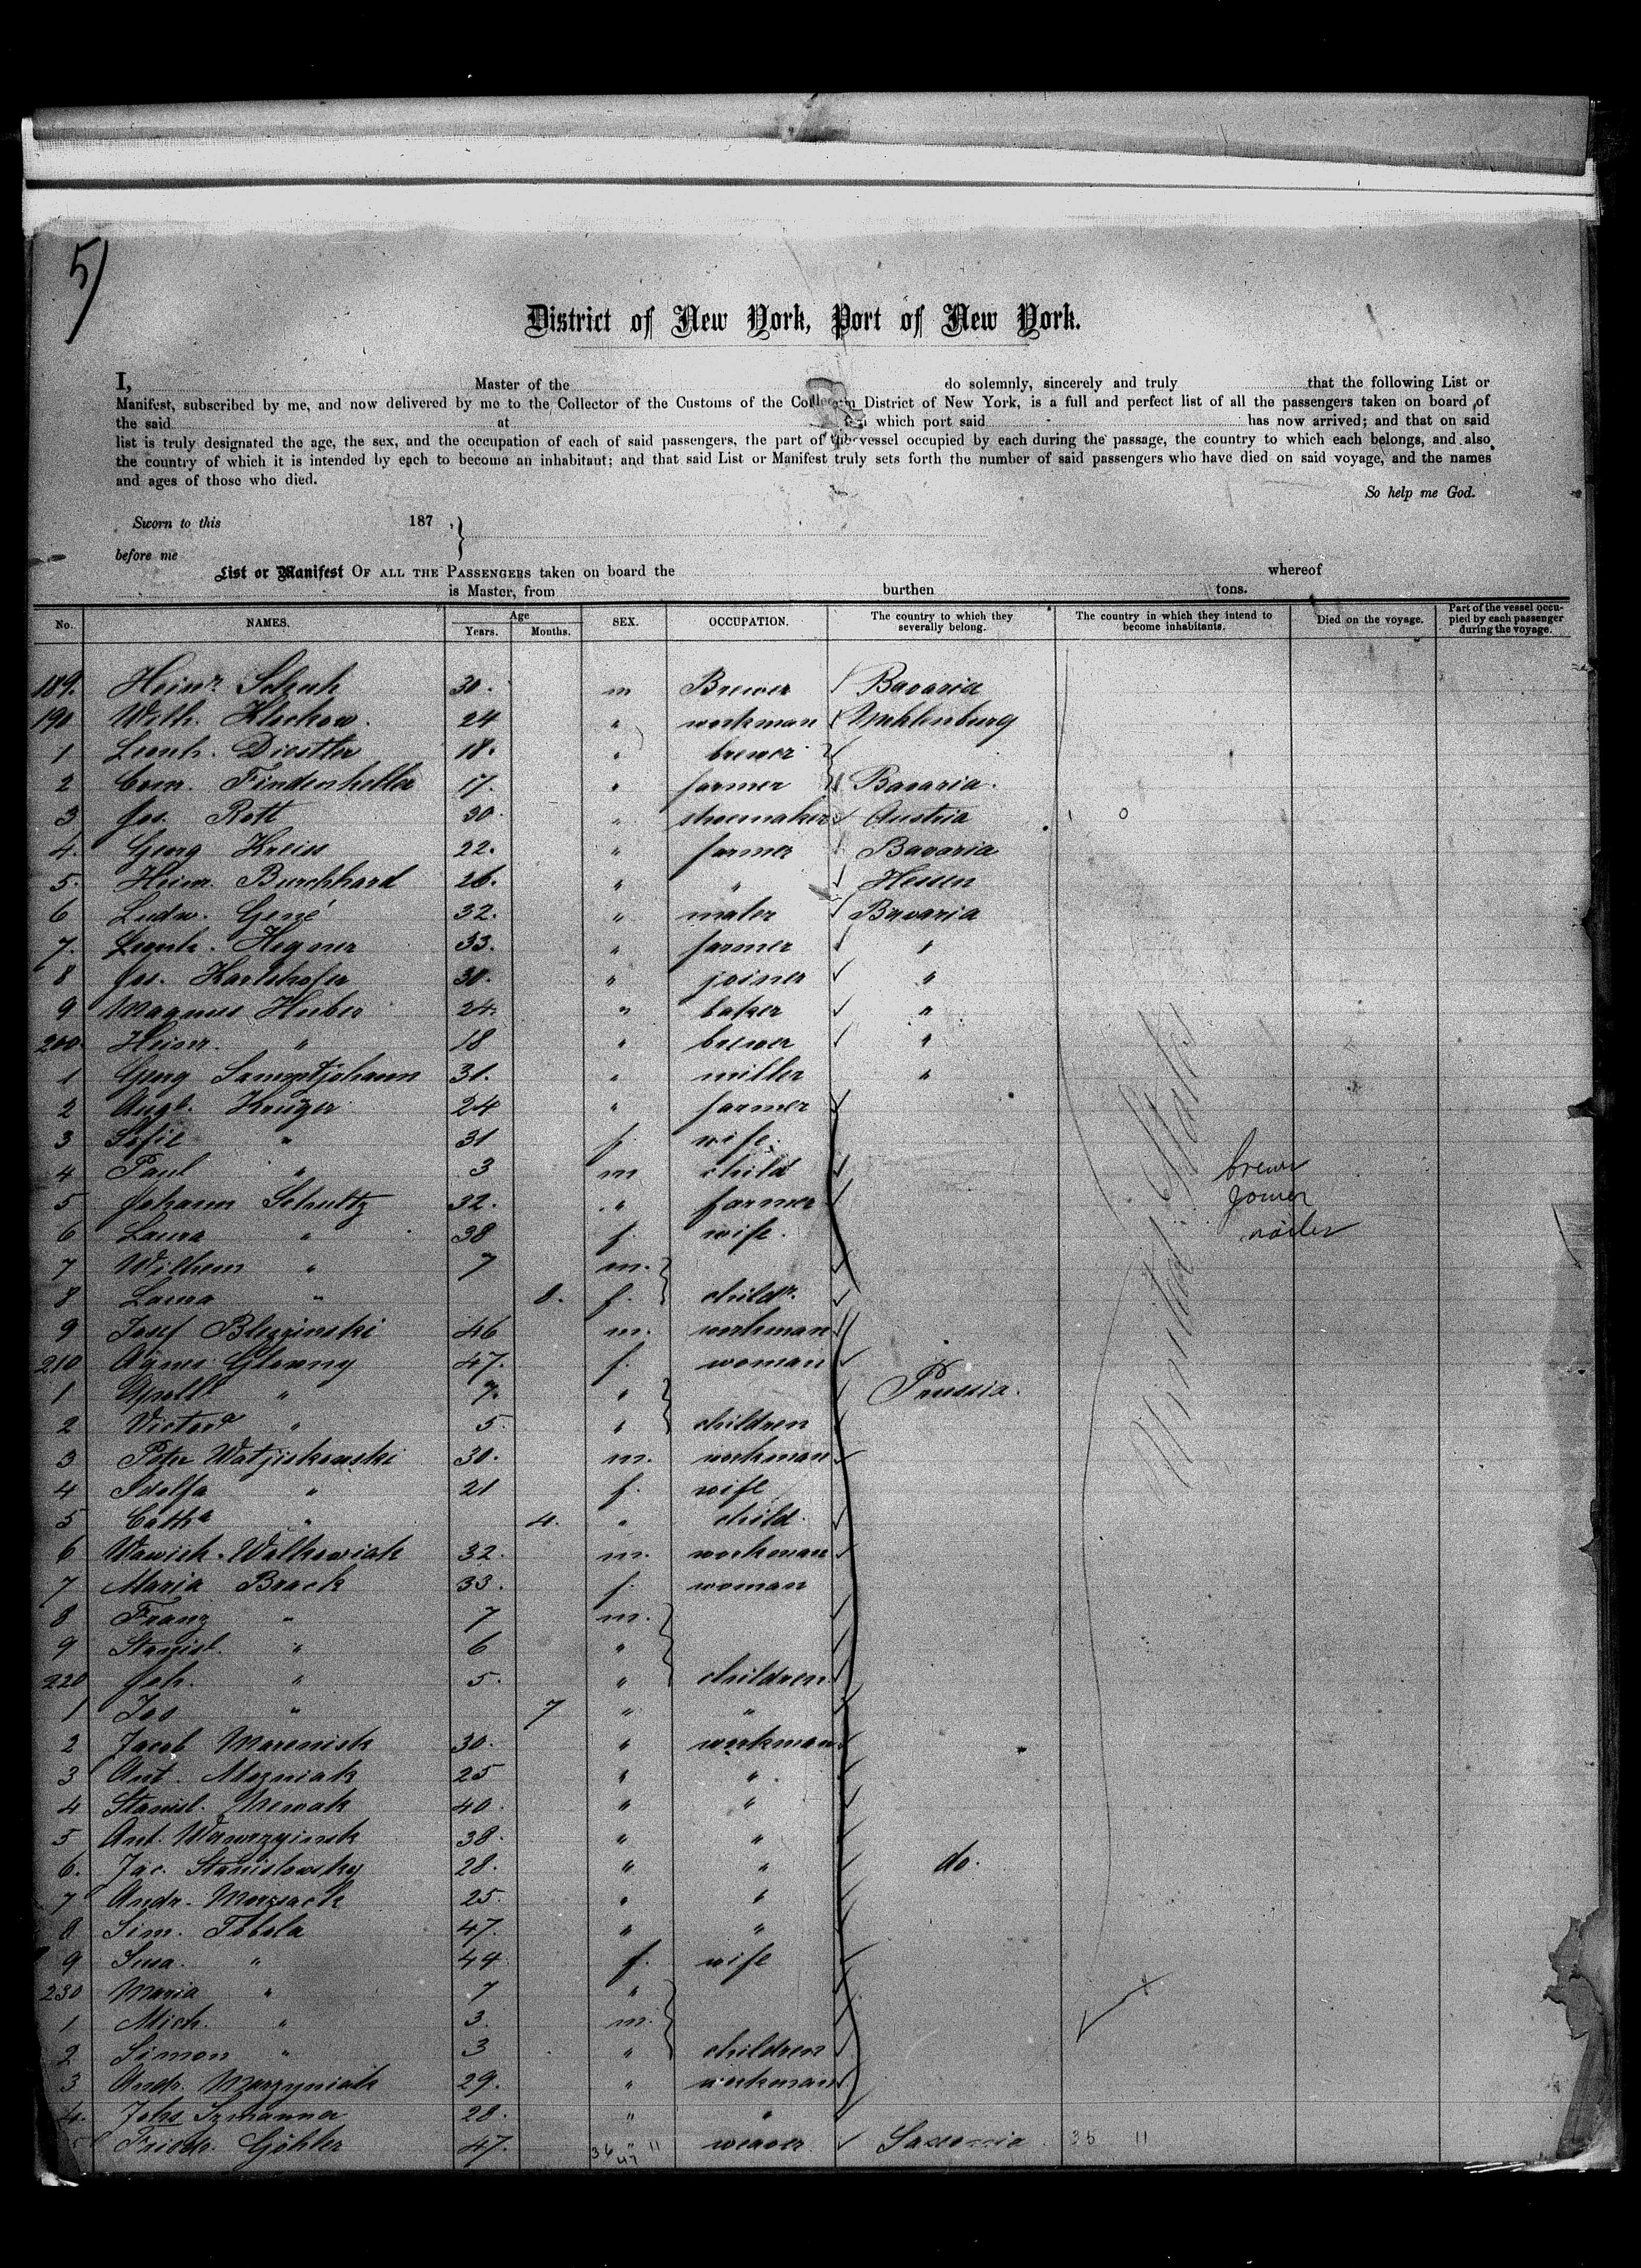 5)
District of New York, Port of New York.
I, Master of the do solemnly, sincerely and truly that the following List or
Manifest, subscribed by me, and now delivered by me to the Collector of the Customs of the Collection District of New York, is a full and perfect list of all the passengers taken on board of
the said at which port said has now arrived; and that on said
list is truly designated the age, the sex, and the occupation of each of said passengers, the part of the vessel occupied by each during the passage, the country to which each belongs, and also
the country of which it is intended by each to become an inhabitant; and that said List or Manifest truly sets forth the number of said passengers who have died on said voyage, and the names
and ages of those who died.
So help me God.
Sworn to this 187
before me
List or Manifest OF ALL THE PASSENGERS taken on board the whereof
is Master, from burthen tons.
No. NAMES. Age Years. Months. SEX. OCCUPATION. The country to which they severally belong. The country in which they intend to become inhabitants. Died on the voyage. Part of the vessel occupied by each passenger during the voyage.
189. Heinr 30. m Brewer Bavaria
190 Wilh. Klockow. 24 " workman
1 Leonh. Distler 18. " brewer
2 Findenheller 17. " farmer Bavaria.
3 Jos. Rott 30. " shoemaker Austria
4. Georg Kreiss 22. " farmer Bavaria
5. Heinr. Burchhard 26. " " Hessen
6 Ludw. Gené 32. " Bavaria
7. Leonh. Hegner 33. " farmer "
8 Jos. Karlshofer 30. " joiner "
9 Magnus Huber 24. " baker "
200 Heinr. " 18 " brewer "
1 Georg Sammetjohann 31. " miller "
2 Aug. Krüger 24 " farmer
3 Sofie " 31 f. wife.
4 Paul " 3 m child
5 Johann Schultz 32. " farmer
6 Laura " 38 f. wife.
7 Wilhem " 7 m.
8 Laura " 8. f. childr.
9 Josef 46 m. workman
210 Agnes Glowny 47. f. woman
1 " 7. " Prussia.
2 " 5 " children
3 Peter Watjiskowski 30. m. workman
4 Idolfa " 21 f. wife
5 Cath " 4. " child
6 Walkowiak 32. m. workman
7 Maria Brack 33. f. woman
8 Franz " 7 m.
9 Stanisl. " 6 "
220 Joh. " 5. " children
1 Jos " 7 " "
2 Jacob 30. " workman
3 Ant. Mozniak 25 " "
4 Stanisl. 40. " "
5 Ant. 38. " "
6. Jac. Stanislowsky 28. " " do.
7 Andr. 25. " "
8 Sim. Tobola 47. " "
9 Susa. " 44 f. wife
230 Maria " 7 "
1 Mich. " 3. m.
2 Simon " 3 " children
3 Andr. Marzyniak 29. " workman
4. Johs Szmanna 28. " "
5 Friedr. Göhler 47. " weaver Saxonia 35 11
United States
brewer
joiner